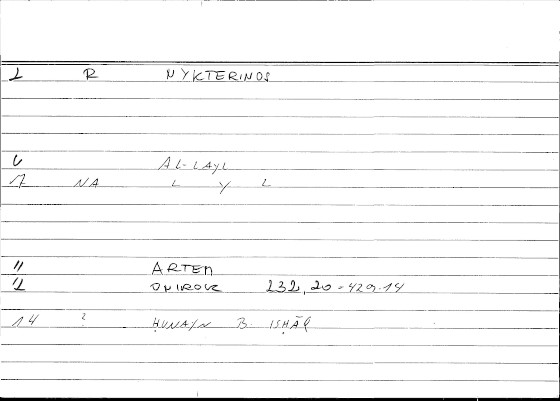 1 R NYKTERINOS
6 AL-LAYL
7 NA L Y L
11 ARTEM
12 ONIROCR 232,20-429.14
14 ? ḤUNAYN B. ISḤĀQ